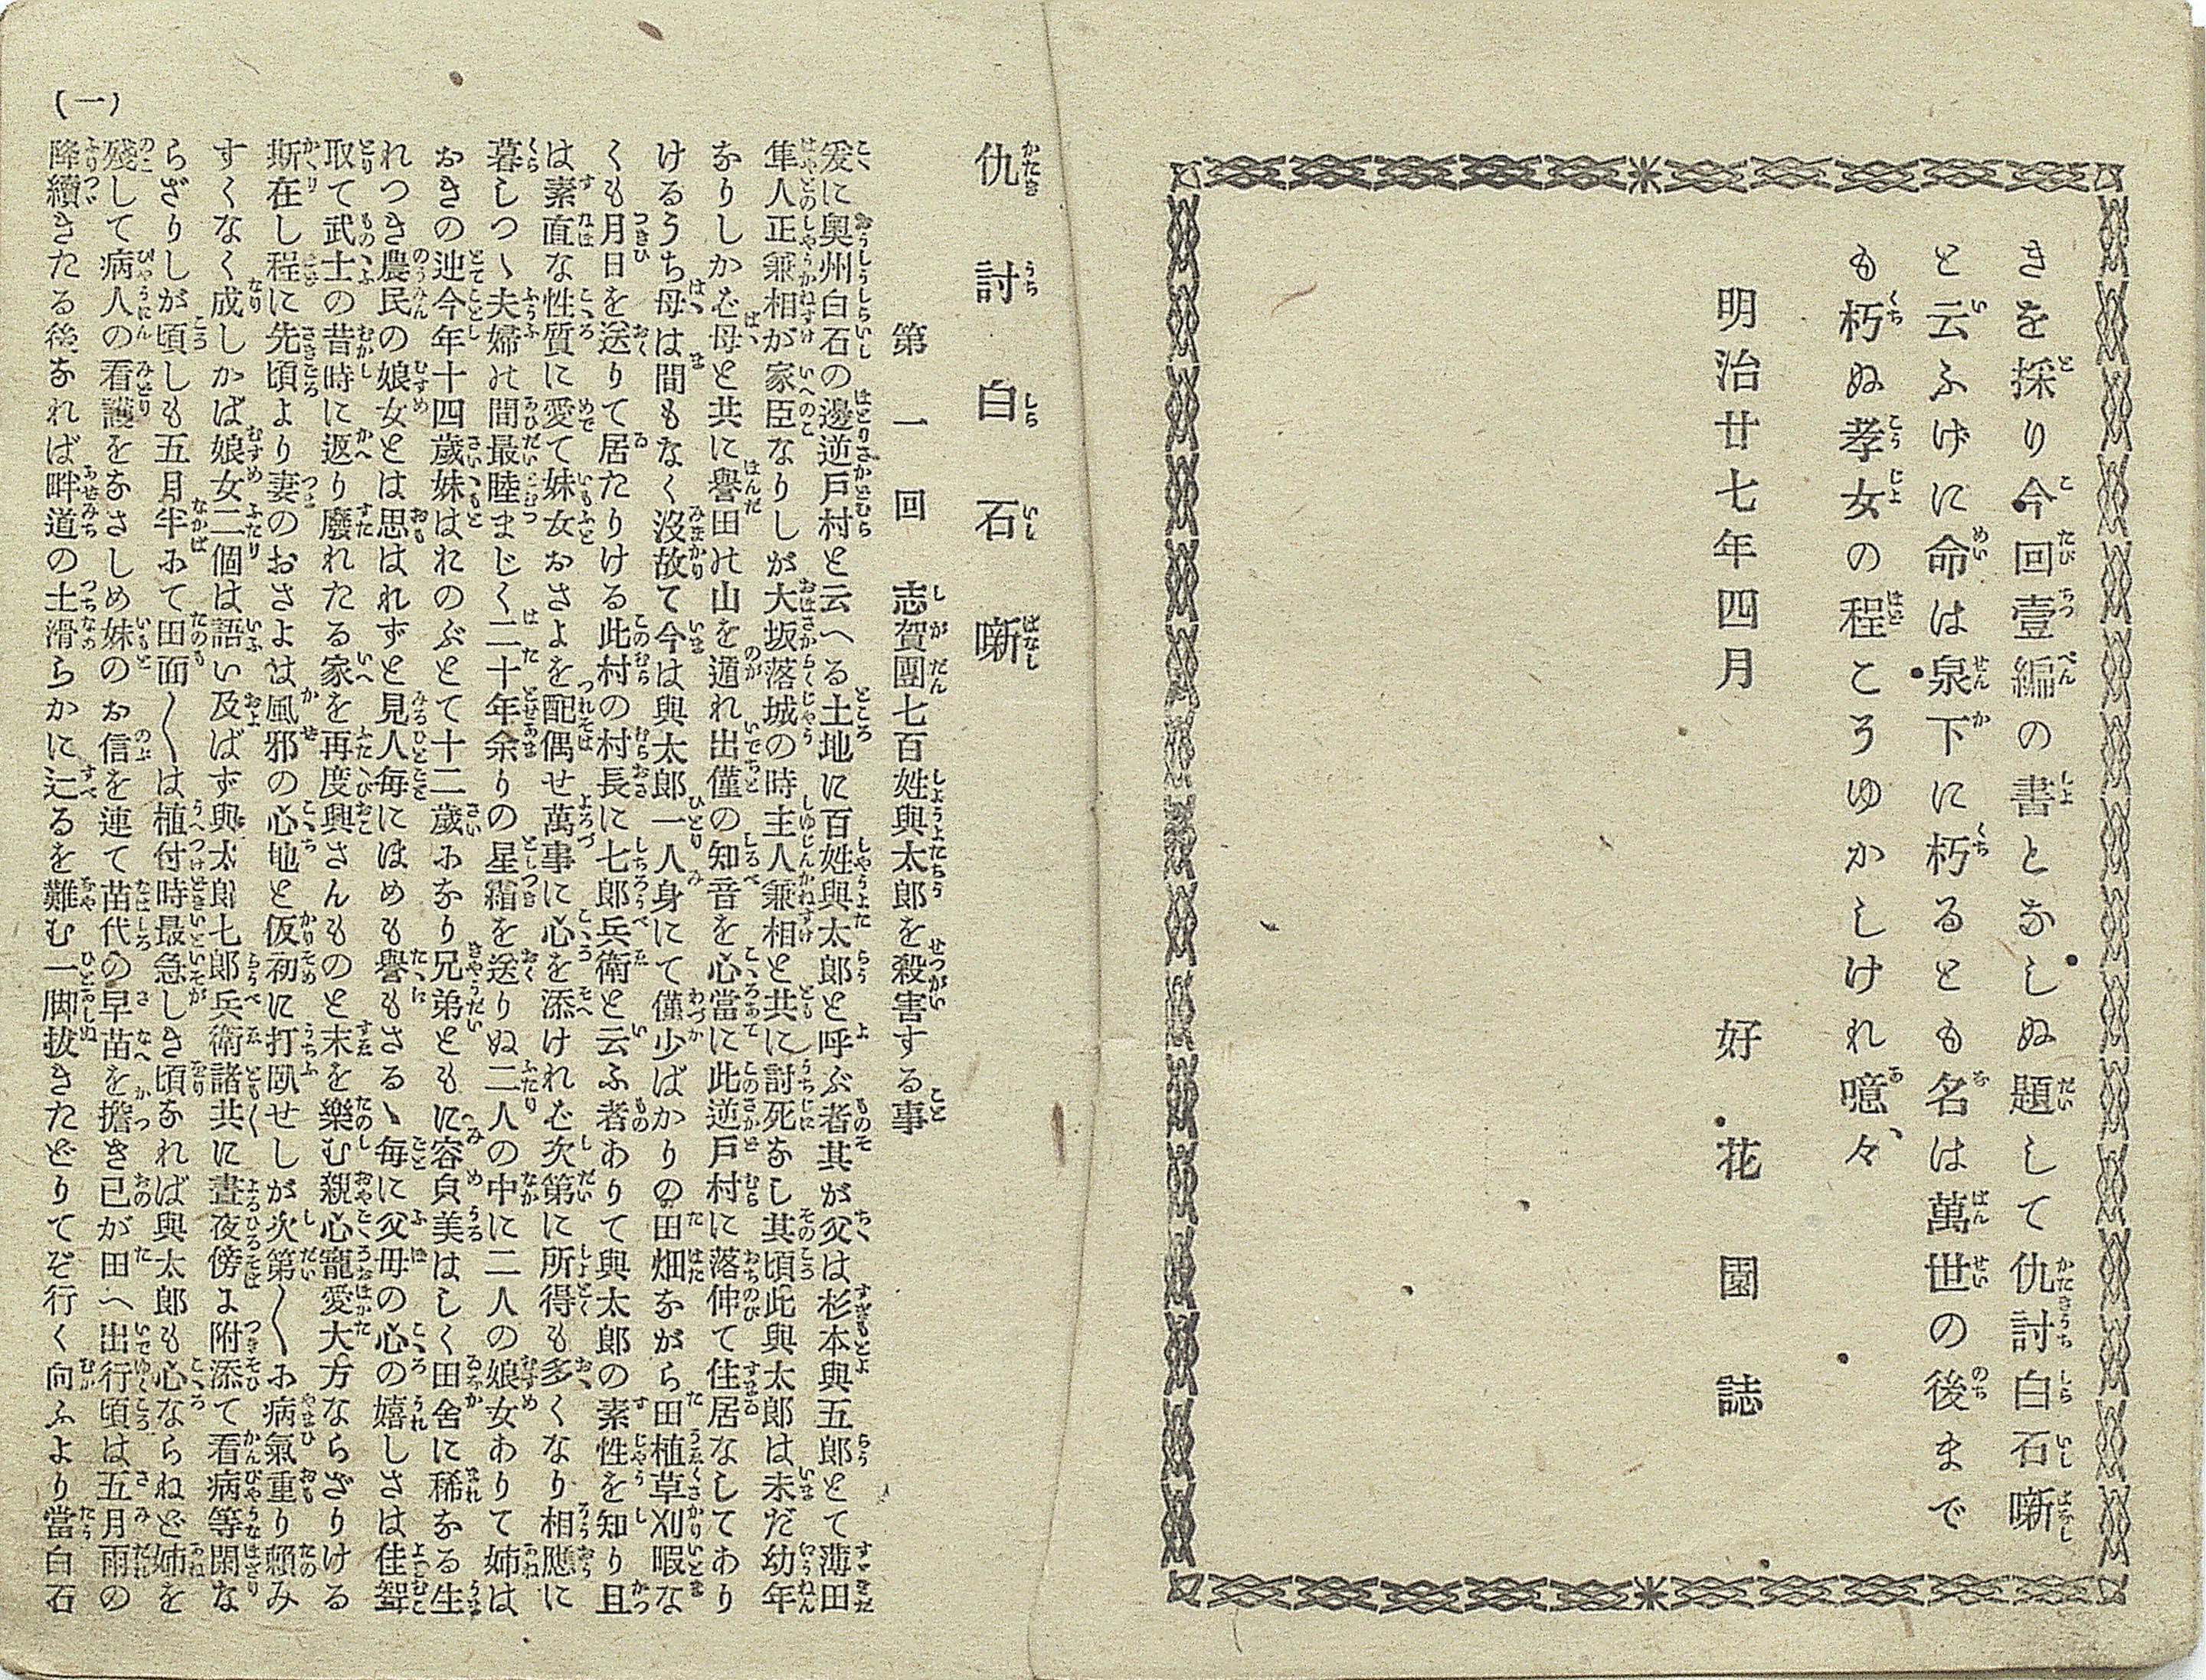 きを採り今回壹編の書となしぬ題して仇討白石噺
と云ふけに命は泉下に朽るとも名は萬世の後まで
も朽ぬ孝女の程こうゆかしけれ噫々
明治廿七年四月
好花園誌
仇討白石噺
第一回 志賀團七百姓與太郎を殺害する事
爰に奥州白石の邊逆戸村と云へる土地に百姓與太郎と呼ぶ者其が父は杉本與五郎とて薄田
隼人正兼相が家臣なりしが大坂落城の時主人兼相と共に討死なし其頃此與太郎は未だ幼年
なりしかば母と共に譽田の山を遁れ出僅の知音を心當に此逆戸村に落伸て住居なしてあり
けるうち母は間もなく沒故て今は與太郎一人身にて僅少ばかりの田畑ながら田植草刈暇な
くも月日を送りて居たりける此村の村長に七郎兵衛と云ふ者ありて與太郎の素性を知り且
は素直な性質に愛て妹女おさよを配偶せ萬事に心を添けれど次第に所得も多くなり相應に
暮しつゝ夫婦の間最睦まじく二十年余りの星霜を送りぬ二人の中に二人の娘女ありて姉は
おきの迚今年十四歲妹はれのぶとて十二歲になり兄弟ともに容貞美はしく田舍に稀なる生
れつき農民の娘女とは思はれずと見人每にほめも譽もさるゝ每に父母の心の嬉しさは佳聟
取て武士の昔時に返り廢れたる家を再度興さんものと末を樂む親心寵愛大方ならざりける
斯在し程に先頃より妻のおさよは風邪の心地と仮初に打臥せしが次第〱に病氣重り賴み
すくなく成しかば娘女二個は語い及ばず與太郎七郎兵衛諸共に晝夜傍よ附添て看病等閑な
らざりしが頃しも五月半にて田面〱は植付時最急しき頃なれば與太郎も心ならねど姉を
殘して病人の看護をなさしめ妹のお信を連て苗代の早苗を擔き己が田へ出行頃は五月雨の
降續きたる後なれば畔道の土滑らかに辷るを難む一脚拔きたどりてぞ行く向ふより當白石
(一)